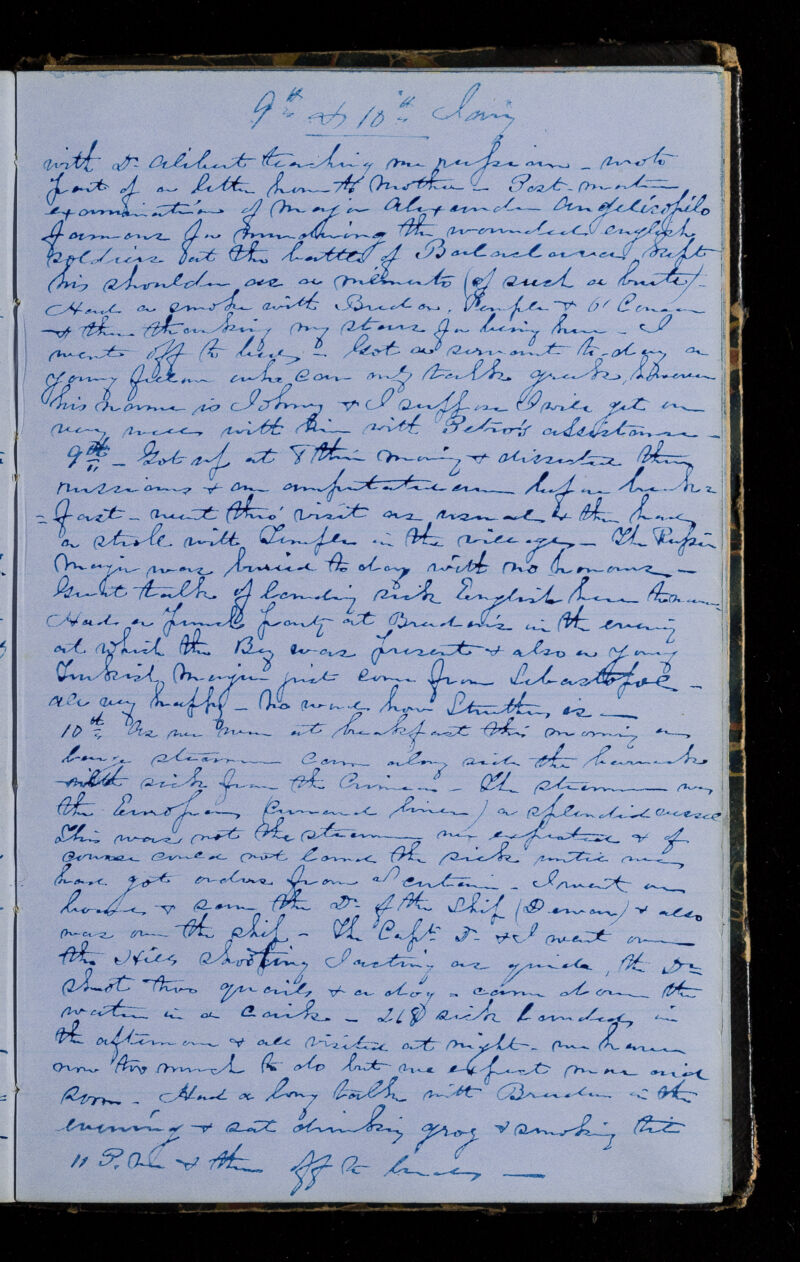 9th & 10th Jany
with Dr. Alibert teaching me russian - wrote
part of a letter home to Mother - Post-mortem
examination of Major Alexander Angelicopilo
famous for murdering the wounded english
soldiers at the battle of Balaclava. Kept
his shoulder as a memento (of such a brute) -
Had a smoke with Bruden, Temple & O'Connor
& then thanking my stars for being here - I
went off to bed - Got a servant to-day a
young fellow who can only talk greek, however
his name is Johnny & I suppose I will get on
very well with him with Petro's assistance -
9th - Got up at 8 this morning & dissected three
russians & an amputated arm before break=
=fast - went thro' visit as usual & then had
a stroll with Temple in the village - The Russian
Major was buried to day with no honours -
Great talk of landing sick English here
Had a punch party at Bruden's in the evening
at which the Bey was present & also a young
Turkish Major just come from Sebastopol -
all very happy - no word how Struthers is -
10th As we were at breakfast this morning a
large steamer came along side the barracks
with sick from the Crimea - The steamer was
the European (Cunard liner) a splendid vessel
This was not the steamer we expected & of
course could not land the sick until we
had got orders from Scutari - I went on
board & saw the Dr. of the Ship (Dewar) & also
was over the ship - The Capt. Dr. & I went over
the Hills shooting I acting as guide, the Dr
shot two quails & a dog - came down the
water in a Caike - 268 sick landed in
the afternoon & all visited at night - we have
now too much to do but we expect more aid
soon - Had a long talk with Bruden in the
evening & sat drinking grog & smoking till
11 P.M & then off to bed -